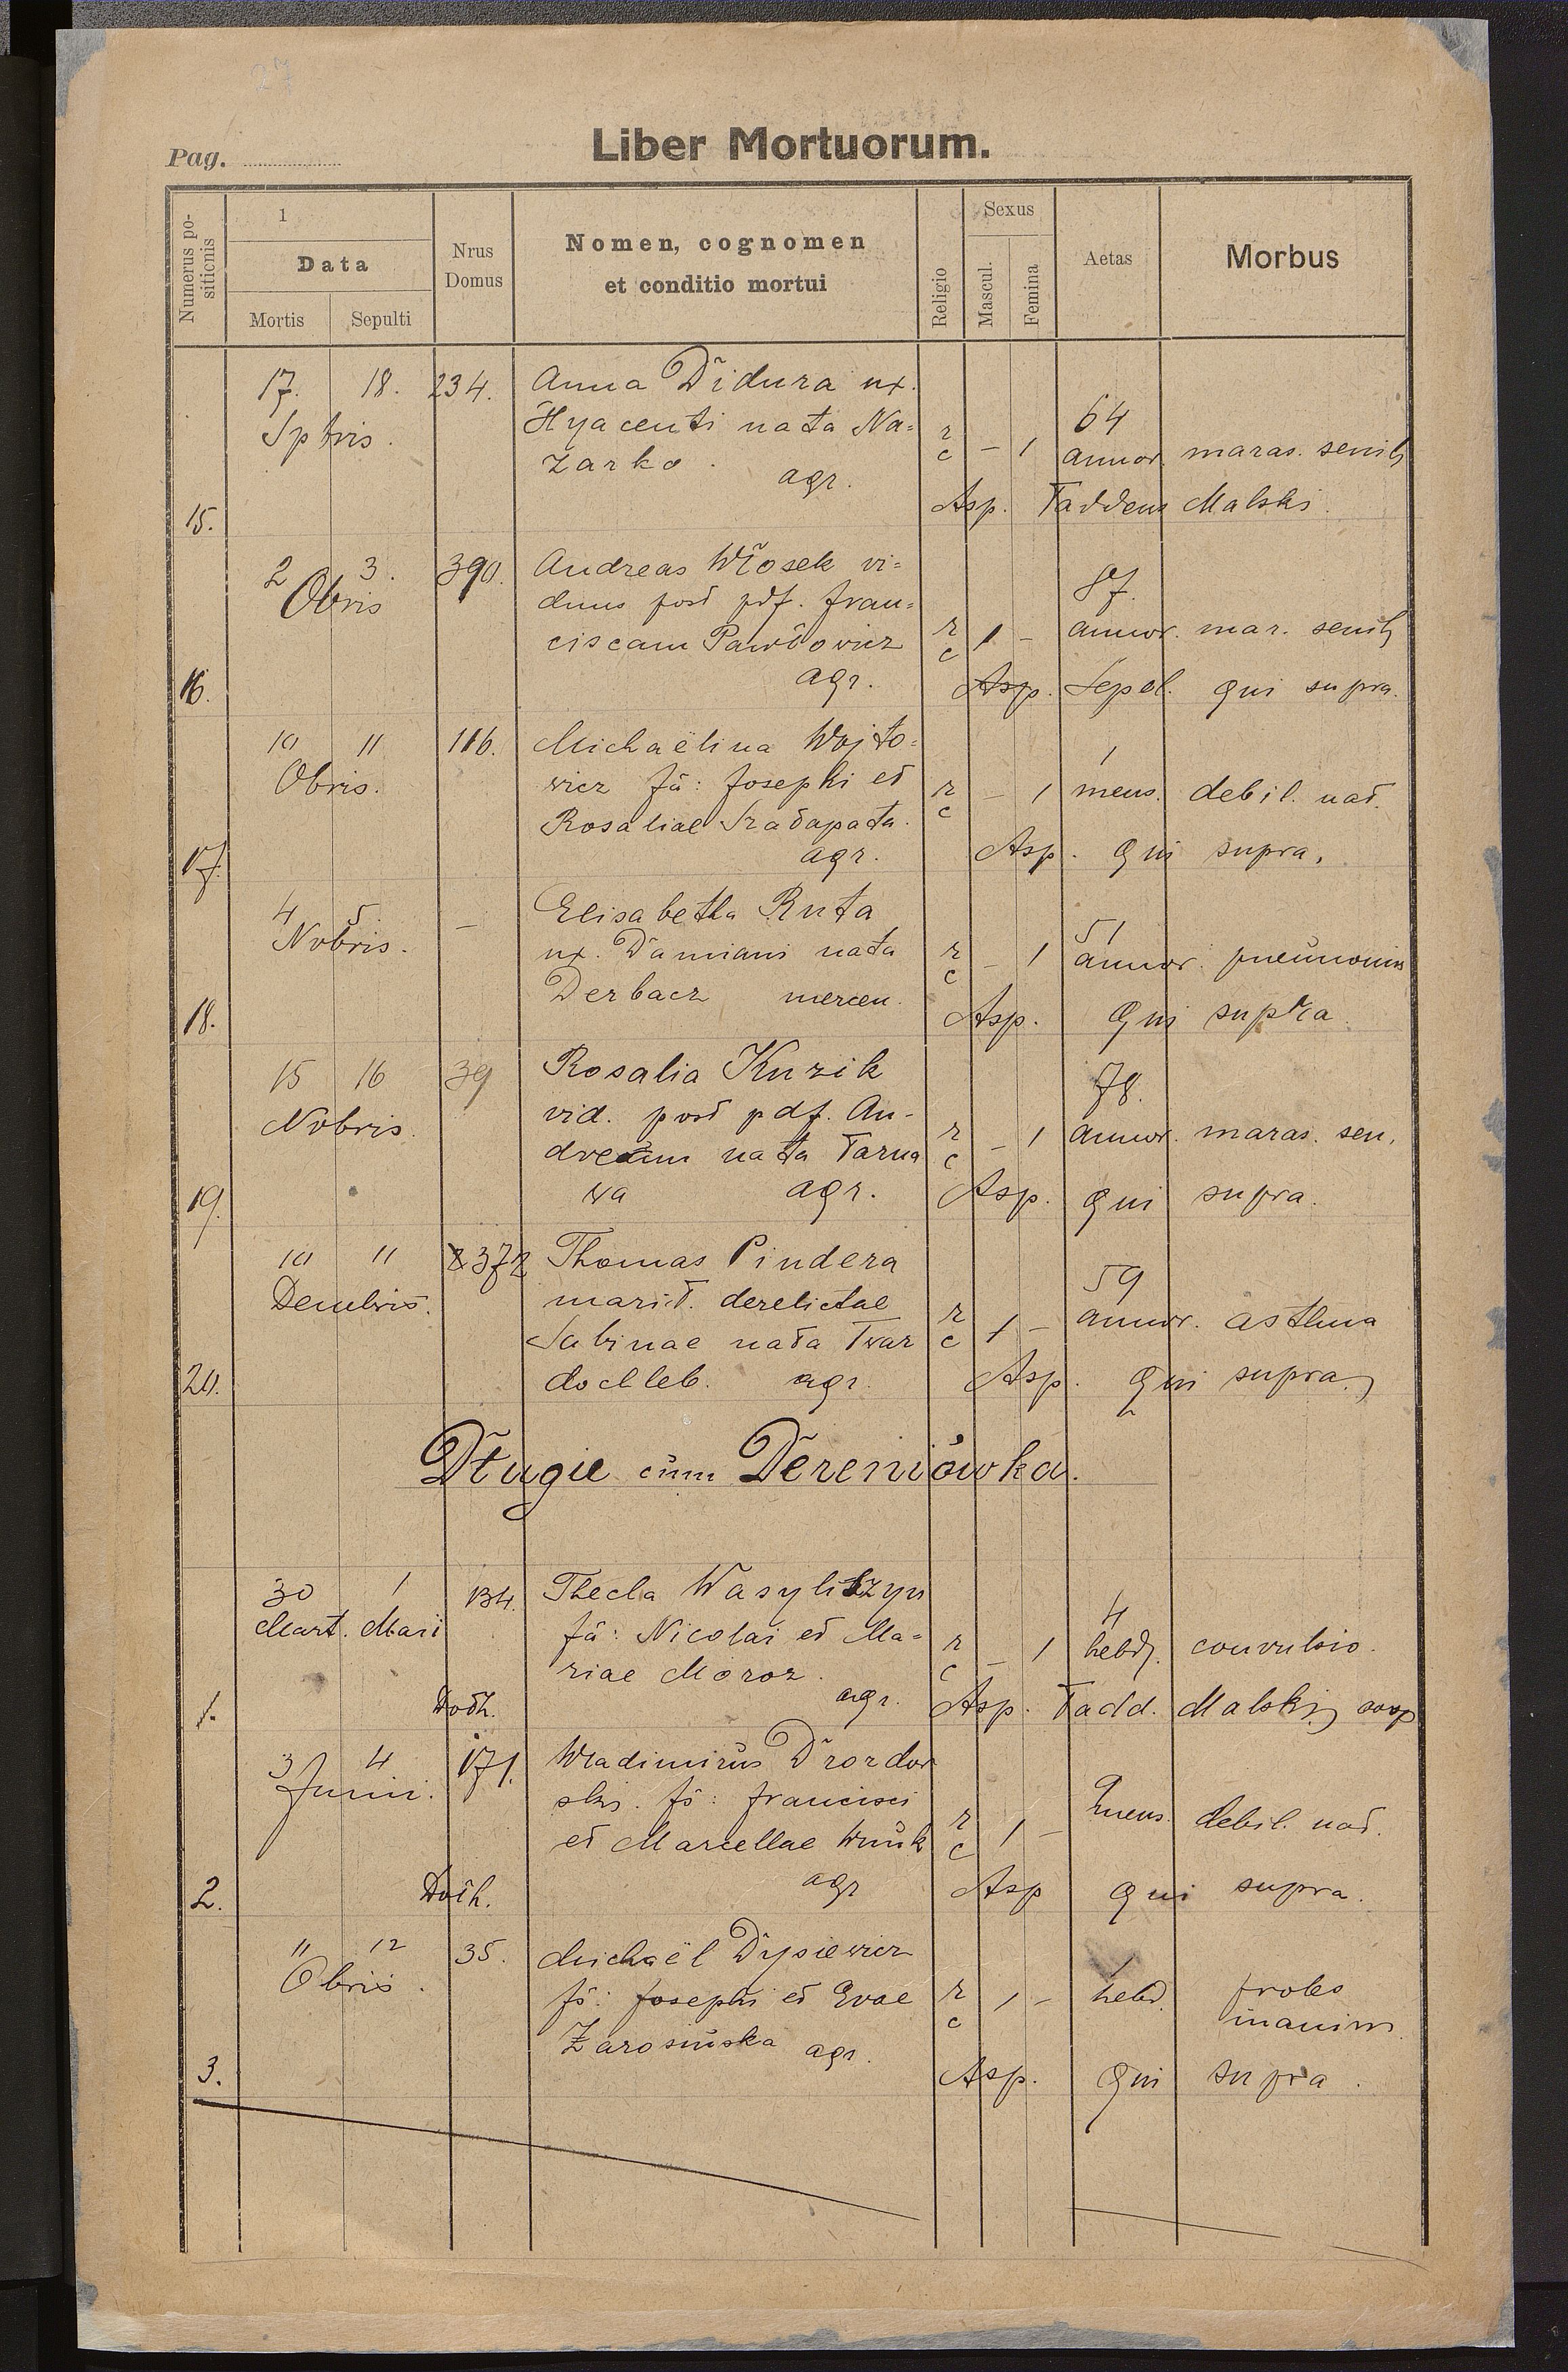 27
Pag.
Liber Mortuorum.
Numerus po-
siticnis
1
Data
Mortis Sepulti
Nrus
Domus
Nomen, cognomen
et conditio mortui
Religio
Sexus
Mascul.
Femina
Aetas
Morbus
17. 18. 234. Anna Didura ux.
Sptbris. Hyacenti nata Na= 64
zarko. r c – 1 annor. maras. senil
agr.
15. Asp. Taddeus Malski.
2 3. 390. Andreas Włosek vi= 87.
Obris duus post pdf. Fran=
ciscam Pawłowicz r c 1 – annor. mar. senil
16. agr. Asp. Sepel. qui supra.
10 11 116. Michaëlina Wojto= 1
Obris. wicz fa: Josephi et r c – 1 mens. debil. nat.
Rosaliae Szałapata.
17. agr. Asp. qui supra.
4 5. – Elisabetha Ruta 51
Nobris. ux. Damiani nata r c – 1 annor. pneumonia
Derbacz mercen.
18. Asp. qui supra.
15 16 39 Rosalia Kuzik 78.
Nobris. vid. post pdf. An-
dream nata Tarna r c – 1 annor. maras. sen.
19. wa agr. Asp. qui supra.
10 11 372 Thomas Pindera 59
Decmbris. marit. derelictae
Sabinae nata Twar r c 1 – annor. asthma
20. dochleb. agr. Asp. qui supra.
Długie cum Dereniówka.
30 1 134. Thecla Wasyliszyn 4
Mart. Maii fa: Nicolai et Ma= r c – 1 hebd. convulsio.
riae Moroz.
1. agr. Asp. Tadd. Malski, coop
3 4 171. Wladimirus Drozdow
Junii. ski. fs: Francisci 2 mens. debil. nat.
et Marcellae Wnuk r c 1 –
2. agr Asp qui supra.
11 12 35. Michaël Dysiewicz 1
Obris. fs: Josephi et Evae r c 1 – hebd. proles
Żarosińska agr. inanim.
3. Asp. qui supra.